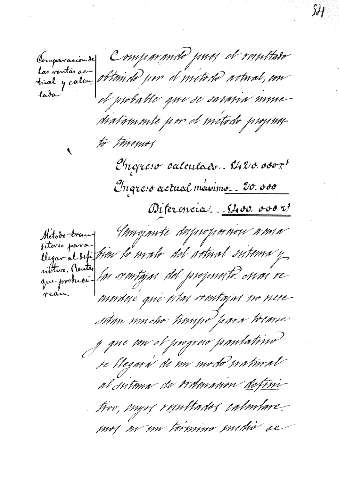 54
Comparacion de
las rentas ac-
tual y calcu-
lada
Comparando pues el resultado
obtenido por el método actual, con
el probable que se sacaria inme-
diatamente por el método propues-
to tenemos
Ingreso calculado.. 5420.000 rs
Ingreso actual máximo.. 20.000
Diferencia.. 5400.000 rs
Método tran-
sitorio para
llegar al defi-
nitivo. Rentas
que produci-
rian.
desproporcion
bien lo malo del actual sistema y
las ventajas del propuesto.
que estas ventajas no nece-
sitan mucho tiempo para tocarse
y que con el progreso paulatino
se llegará de un modo natural
al sistema de ordenacion defini-
tivo, cuyos resultados calculare-
mos en un término medio se